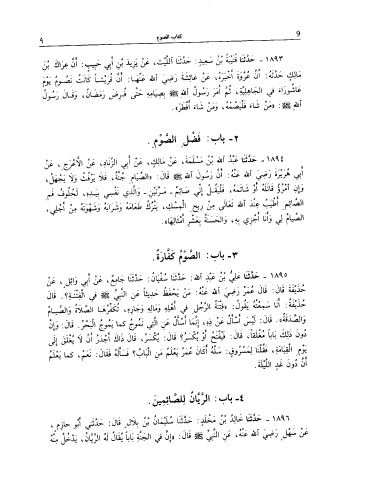 ٩ كتاب الصوم 9
١٨٩٣ - حَدَّثَنَا قُتَيْبَةُ بْنُ سَعِيدٍ: حَدَّثَنَا اللَّيْثُ، عَنْ يَزِيدَ بْنِ أَبِي حَبِيبٍ: أَنَّ عِرَاكَ بْنَ
مَالِكٍ حَدَّثَهُ: أَنَّ عُرْوَةَ أَخْبَرَهُ، عَنْ عَائِشَةَ رَضِيَ اللهُ عَنْهَا: أَنَّ قُرَيْشاً كَانَتْ تَصُومُ يَوْمَ
عَاشُورَاءَ فِي الْجَاهِلِيَّةِ، ثُمَّ أَمَرَ رَسُولُ اللهِ ﷺ بِصِيَامِهِ حَتَّى فُرِضَ رَمَضَانُ، وَقَالَ رَسُولُ
اللهِ ﷺ: «مَنْ شَاءَ فَلْيَصُمْهُ، وَمَنْ شَاءَ أَفْطَرَ».
٢- باب: فَضْلُ الصَّوْمِ.
١٨٩٤ - حَدَّثَنَا عَبْدُ اللهِ بْنُ مَسْلَمَةَ، عَنْ مَالِكٍ، عَنْ أَبِي الزِّنَادِ، عَنِ الْأَعْرَجِ، عَنْ
أَبِي هُرَيْرَةَ رَضِيَ اللهُ عَنْهُ: أَنَّ رَسُولَ اللهِ ﷺ قَالَ: «الصِّيَامُ جُنَّةٌ، فَلَا يَرْفُثْ وَلَا يَجْهَلْ،
وَإِنِ امْرُؤٌ قَاتَلَهُ أَوْ شَاتَمَهُ، فَلْيَقُلْ إِنِّي صَائِمٌ - مَرَّتَيْنِ - وَالَّذِي نَفْسِي بِيَدِهِ، لَخُلُوفُ فَمِ
الصَّائِمِ أَطْيَبُ عِنْدَ اللهِ تَعَالَى مِنْ رِيحِ الْمِسْكِ، يَتْرُكُ طَعَامَهُ وَشَرَابَهُ وَشَهْوَتَهُ مِنْ أَجْلِي،
الصِّيَامُ لِي وَأَنَا أَجْزِي بِهِ، وَالْحَسَنَةُ بِعَشْرِ أَمْثَالِهَا».
٣- باب: الصَّوْمُ كَفَّارَةٌ.
١٨٩٥ - حَدَّثَنَا عَلِيُّ بْنُ عَبْدِ اللهِ: حَدَّثَنَا سُفْيَانُ: حَدَّثَنَا جَامِعٌ، عَنْ أَبِي وَائِلٍ، عَنْ
حُذَيْفَةَ قَالَ: قَالَ عُمَرُ رَضِيَ اللهُ عَنْهُ: مَنْ يَحْفَظُ حَدِيثاً عَنِ النَّبِيِّ ﷺ فِي الْفِتْنَةِ؟. قَالَ
حُذَيْفَةُ: أَنَا سَمِعْتُهُ يَقُولُ: «فِتْنَةُ الرَّجُلِ فِي أَهْلِهِ وَمَالِهِ وَجَارِهِ، تُكَفِّرُهَا الصَّلَاةُ وَالصِّيَامُ
وَالصَّدَقَةُ». قَالَ: لَيْسَ أَسْأَلُ عَنْ ذِهِ، إِنَّمَا أَسْأَلُ عَنِ الَّتِي تَمُوجُ كَمَا يَمُوجُ الْبَحْرُ. قَالَ: وَإِنَّ
دُونَ ذَلِكَ بَاباً مُغْلَقاً، قَالَ: فَيُفْتَحُ أَوْ يُكْسَرُ؟ قَالَ: يُكْسَرُ، قَالَ: ذَاكَ أَجْدَرُ أَنْ لَا يُغْلَقَ إِلَى
يَوْمِ الْقِيَامَةِ، فَقُلْنَا لِمَسْرُوقٍ: سَلْهُ أَكَانَ عُمَرُ يَعْلَمُ مَنِ الْبَابُ؟ فَسَأَلَهُ فَقَالَ: نَعَمْ، كَمَا يَعْلَمُ
أَنَّ دُونَ غَدٍ اللَّيْلَةَ.
٤- باب: الرَّيَّانُ لِلصَّائِمِينَ.
١٨٩٦ - حَدَّثَنَا خَالِدُ بْنُ مَخْلَدٍ: حَدَّثَنَا سُلَيْمَانُ بْنُ بِلَالٍ، قَالَ: حَدَّثَنِي أَبُو حَازِمٍ،
عَنْ سَهْلٍ رَضِيَ اللهُ عَنْهُ، عَنِ النَّبِيِّ ﷺ قَالَ: «إِنَّ فِي الْجَنَّةِ بَاباً يُقَالُ لَهُ الرَّيَّانُ، يَدْخُلُ مِنْهُ